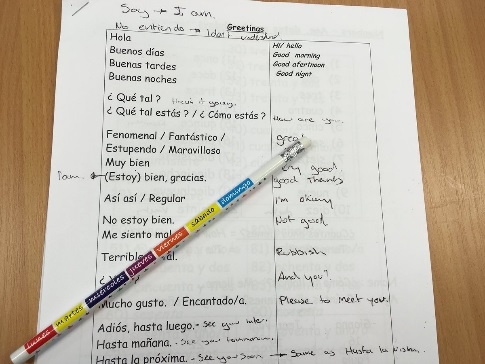 Soy → I am.
No entiendo → I don't understand
Greetings
Hola Hi/ hello
Buenos días Good morning
Buenas tardes Good afternoon
Buenas noches Good night
¿ Qué tal ? How's it going.
¿ Qué tal estás ? / ¿ Cómo estás ? How are you.
Fenomenal / Fantástico /
Estupendo / Maravilloso
Muy bien good.
Iam. (Estoy) bien, gracias. good Thanks
Así así / Regular I'm okay
No estoy bien. Not good
Me siento mal
Terrible Rubbish
And you?
Mucho gusto. / Encantado/a. Please to meet you.
Adiós, hasta luego. - See you later.
Hasta mañana. - See you tomorrow.
Hasta la próxima. - See you Soon → Same as Hasta la
lunes martes miércoles jueves viernes sábado domingo